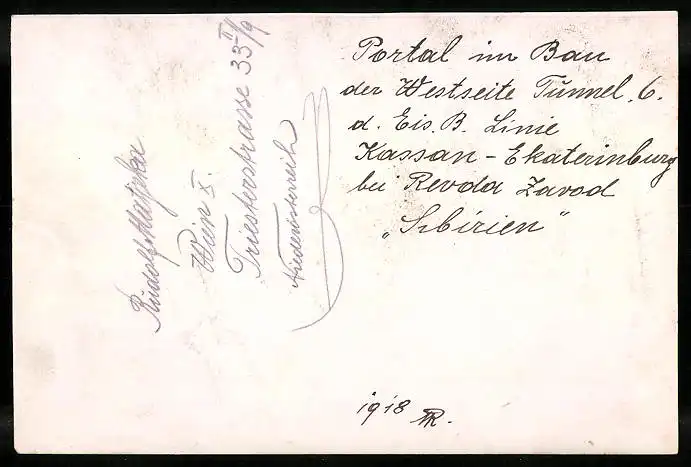 Portal im Bau
der Westseite Tunnel. 6.
d. Eis. B. Linie
Kassan - Ekaterinburg
bei Revda Zavod
„Sibirien"
1918 R.
Rudolf
Wien X.
Triesterstrasse 33 II/9
Niederösterreich